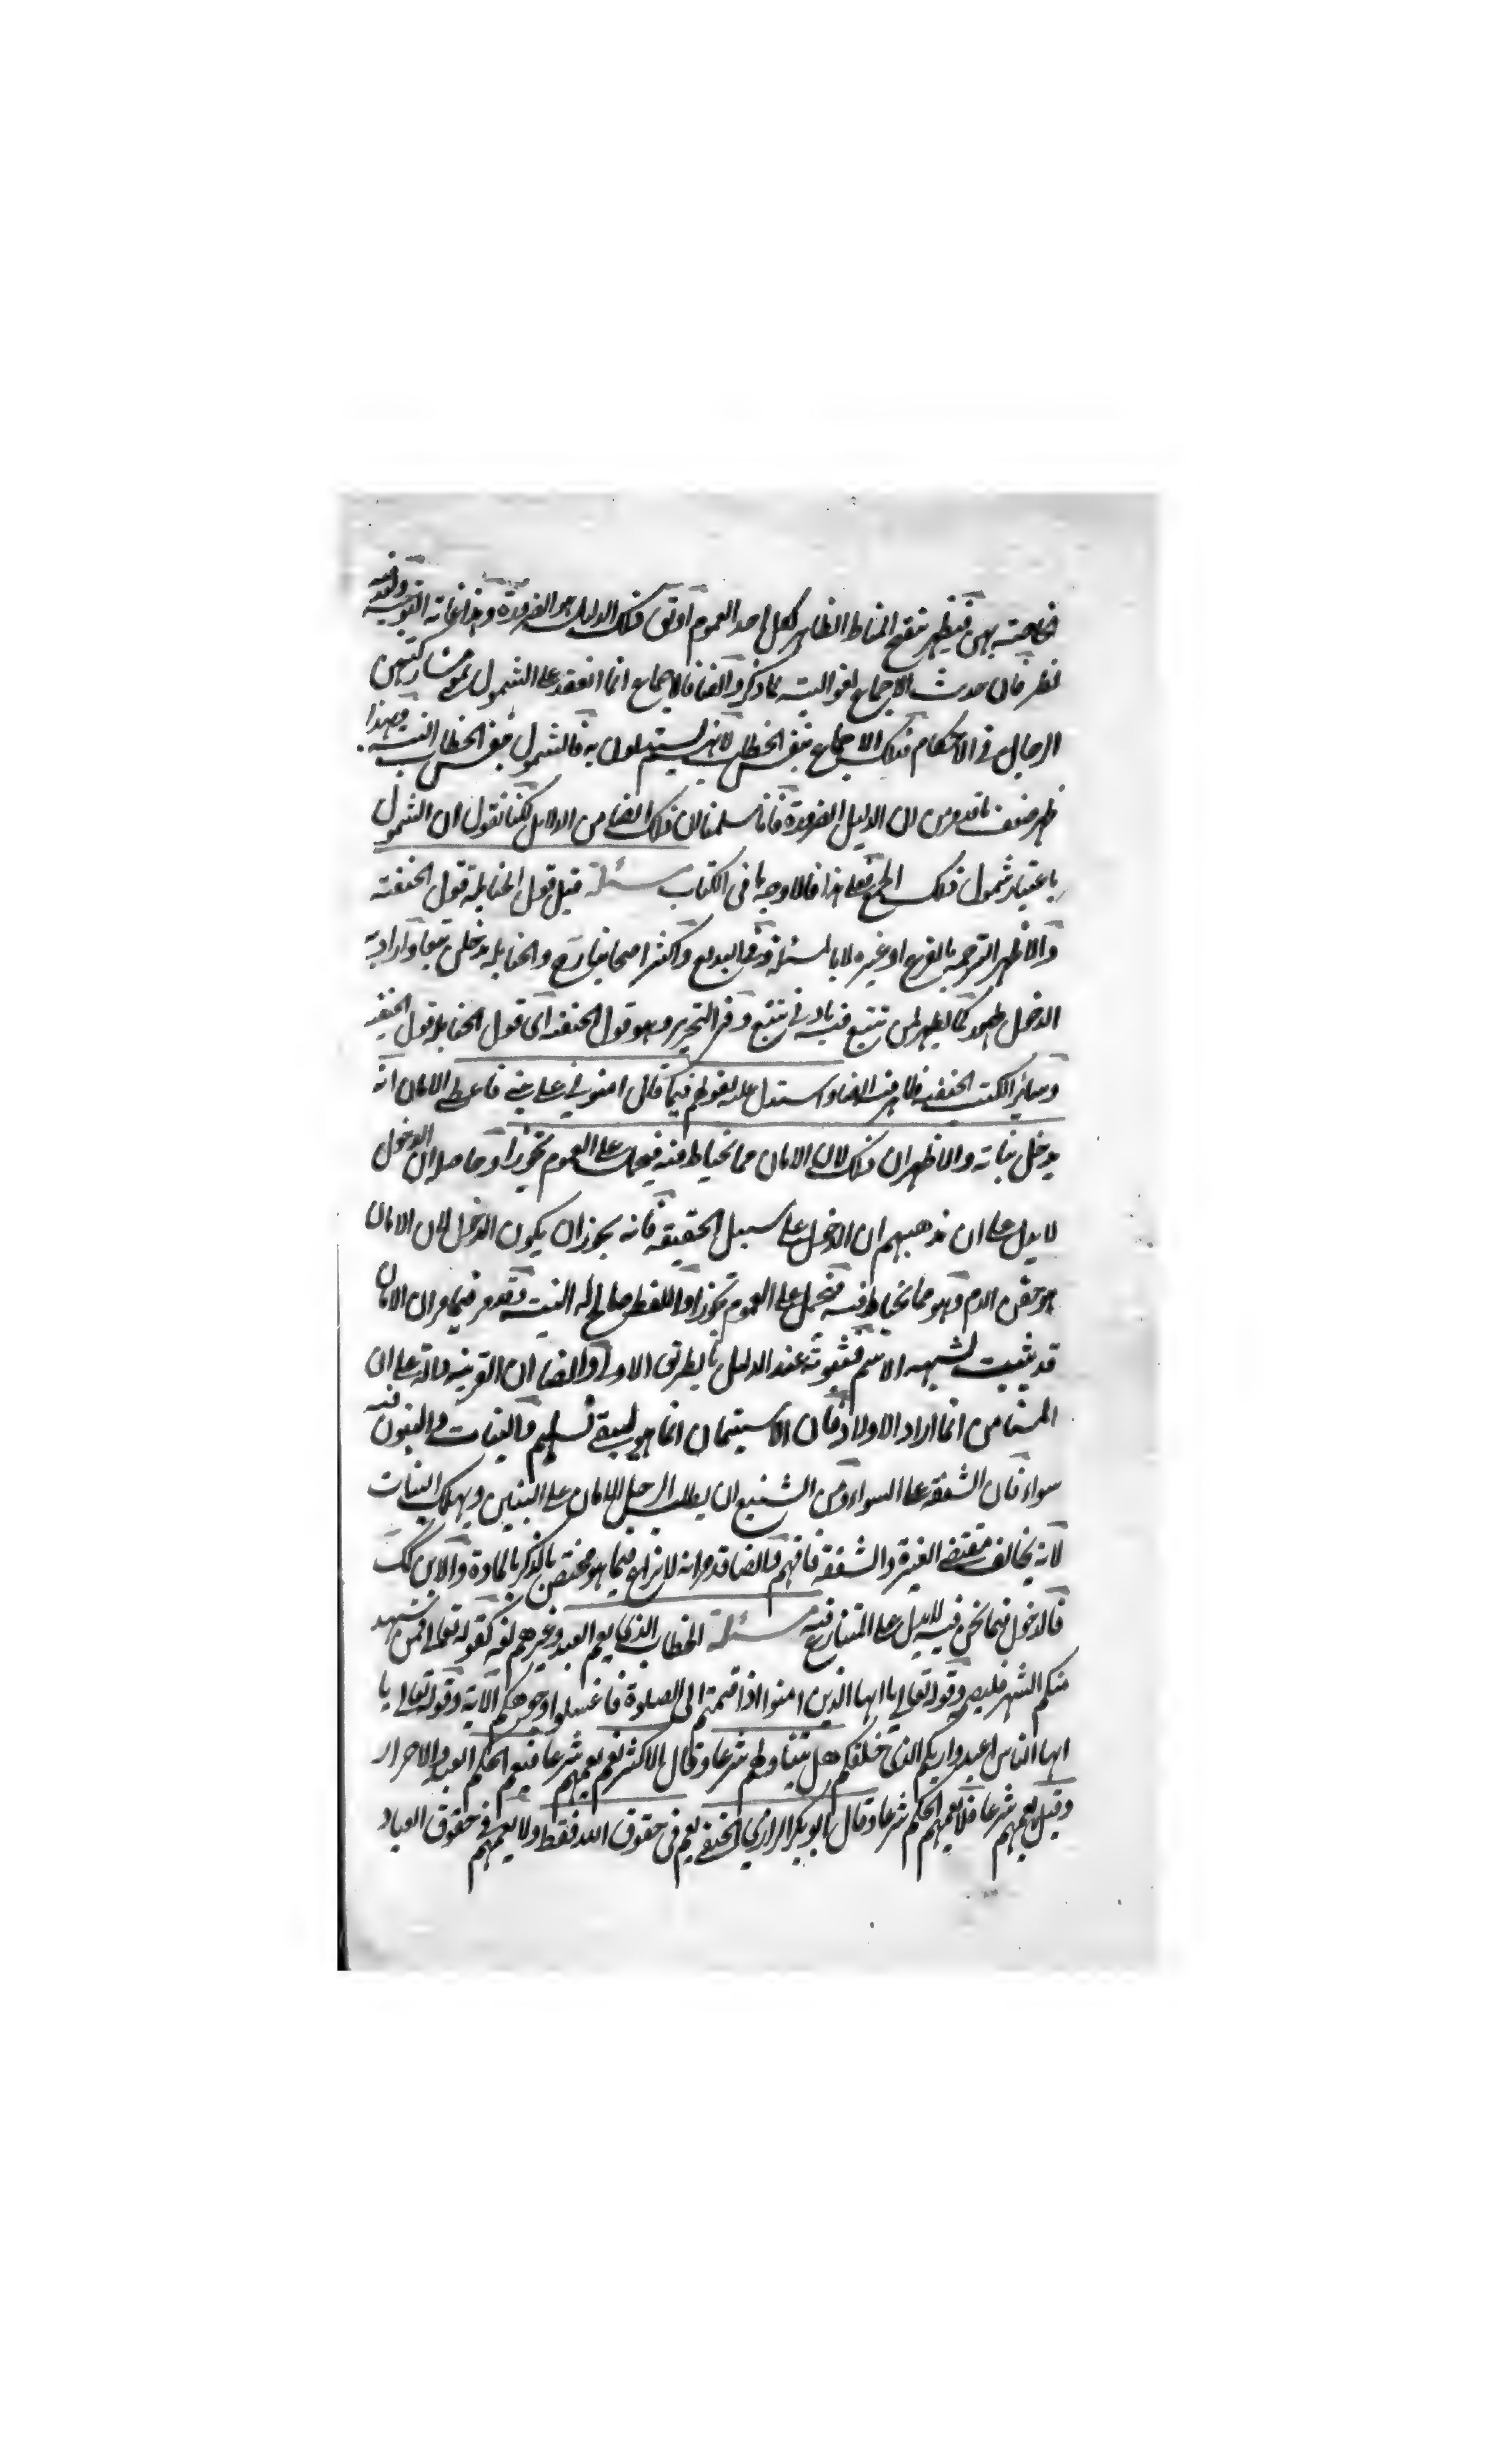 بهن فيظهر تنقح المناط الظاهر لكل احد العموم او تق ذلك الدليل هو الضرورة وهذا غاية التوجيه وفيه
نظر فان حديث الاجماع لغو البتة كما ذكروا لفنا فالاجماع انما انعقد على الشمول لمشاركتهن
الرجال فى الاحكام فذلك الاجماع بنفس الخطاب لانهم يستدلون به فالشمول بنفس الخطاب البتة وبهذا
ظهر ضعف ما قد ومن ان الدليل الضرورة فانا سلمنا ان ذلك ايضا من الدلائل لكنا نقول ان الشمول
باعتبار شمول ذلك الجمع فعلى هذا فالاوجه ما فى الكتاب مسئلة قبل قول الحنابلة قول الحنفية
والاظهر الترجمة بالفرع او غيره لا بالمسئلة وفى البديع واكثر اصحابنا رح والحنابلة يدخلن تبعا واراد به
الدخول كما يظهر لمن تتبع فيه بادنى تتبع وفى التحرير وهو قول الحنفية اى قول الحنابلة قول الحنفية
وسائر الكتب الحنفية ظاهر فيه ايضا واستدل عليه بقولهم فيما قال امنونى على بنى فاعطى الامان انه
يدخل بناته والاظهر ان ذلك لان الامان مما يحتاط فيه فيحمل على العموم تجوزا وحاصله ان الدخول
لا يدل على ان مذهبهم ان الدخول على سبيل الحقيقة فانه يجوز ان يكون الدخول لان الامان
هو حقن الدم وهو مما يحتاط فيه فيحمل على العموم تجوزا واللفظ صالح له البتة وقد مر فيما مر ان الامان
قد يثبت لشبهة الاسم فثبوته عند الدليل بالطريق الاولى وايضا ان القرينة دالة على ان
المستامن انما اراد الاولاد فان الاستيمان انما هو لبقى نسلهم والبنات والبنون فيه
سواء فان الشفقة على السواء ومن الشنيع ان يطلب الرجل الامان على البنين ويهلك البنات
لانه يخالف مقتضى الغيرة والشفقة فافهم وايضا قد مر انه لا نزاع فيما هو مختص بالذكر بالمادة والابن كك
فالدخول فيما نحن فيه لا يدل على المتنازع فيه مسئلة الخطاب الذى يعم العبيد وغيرهم لغة كقوله تعالى فمن شهد
منكم الشهر فليصمه وقوله تعالى يا ايها الذين امنوا اذا قمتم الى الصلوة فاغسلوا وجوهكم الآية وقوله تعالى يا
ايها الناس اعبدوا ربكم الذى خلقكم هل يتناولهم شرعا وقال الاكثر نعم يعمهم شرعا فيعم الحكم العبيد والاحرار
وقيل لا يعمهم شرعا فلا يعمهم الحكم شرعا وقال ابو بكر الرازى الحنفى يعم فى حقوق الله فقط ولا يعمهم فى حقوق العباد